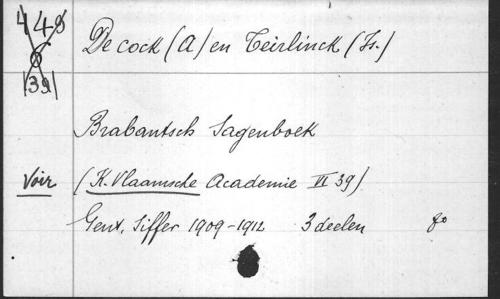 De cock (A) en Teirlinck (Is.)
Brabantsch Sagenboek
Voir (K. Vlaamsche Academie VI 39)
Gent, Siffer 1909-1912 3 deelen 8°